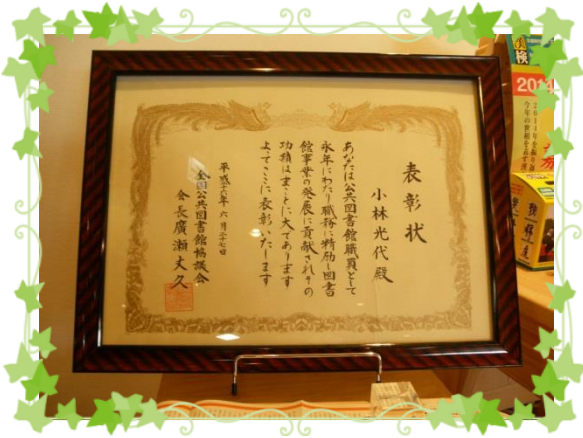 表彰状
小林光代殿
あなたは公共図書館職員として
永年にわたり職務に精励し図書
館事業の発展に貢献されその
功績はまことに大であります
よってここに表彰いたします
平成二十六年六月二十七日
全国公共図書館協議会
会長廣瀬丈久
検
2014
2014年を振り返
今年の世相を表す漢